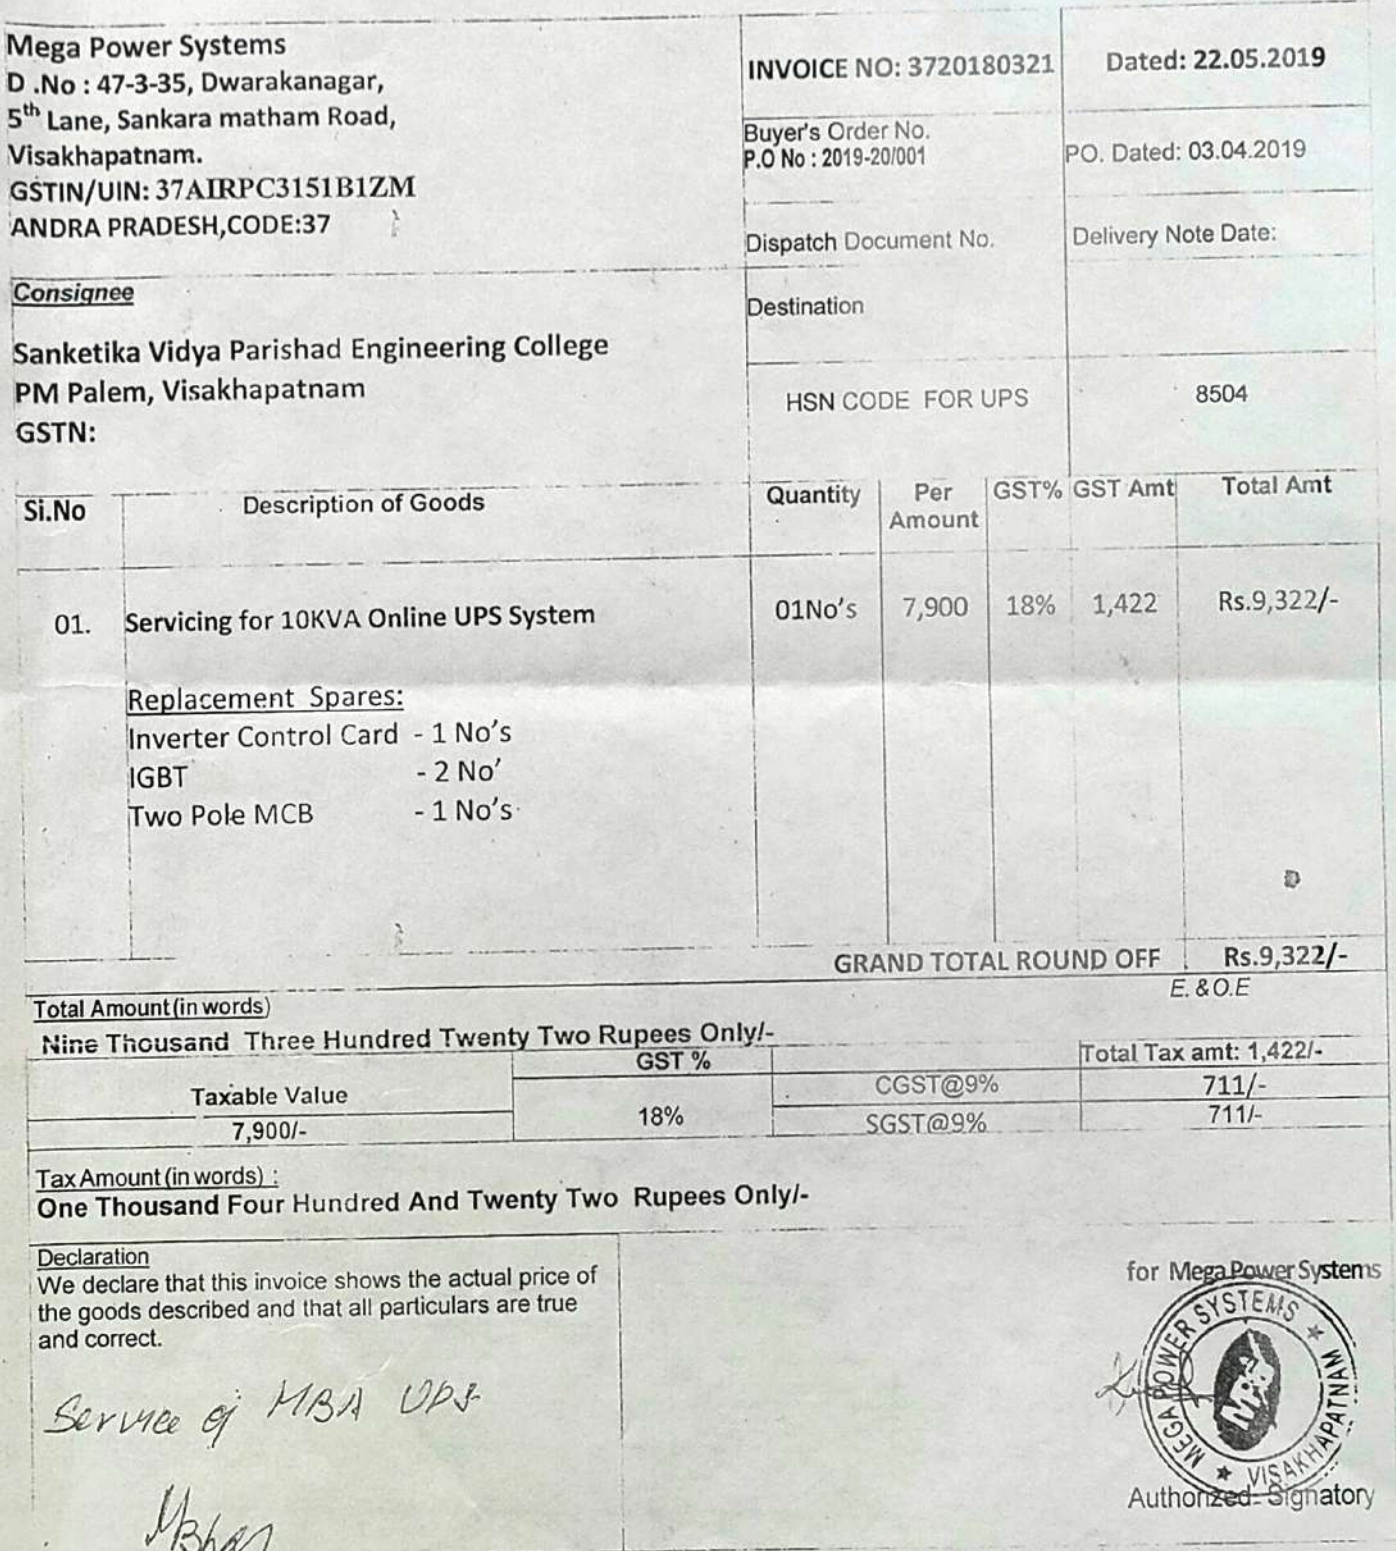 Mega Power Systems
D .No : 47-3-35, Dwarakanagar,
5th Lane, Sankara matham Road,
Visakhapatnam.
GSTIN/UIN: 37AIRPC3151B1ZM
ANDRA PRADESH,CODE:37
INVOICE NO: 3720180321
Dated: 22.05.2019
Buyer's Order No.
P.O No : 2019-20/001
PO. Dated: 03.04.2019
Dispatch Document No.
Delivery Note Date:
Consignee
Sanketika Vidya Parishad Engineering College
PM Palem, Visakhapatnam
GSTN:
Destination
HSN CODE FOR UPS 8504
Si.No Description of Goods Quantity Per Amount GST% GST Amt Total Amt
01. Servicing for 10KVA Online UPS System 01No's 7,900 18% 1,422 Rs.9,322/-
Replacement Spares:
Inverter Control Card - 1 No's
IGBT - 2 No'
Two Pole MCB - 1 No's
GRAND TOTAL ROUND OFF Rs.9,322/-
E. &O.E
Total Amount(in words)
Nine Thousand Three Hundred Twenty Two Rupees Only/-
GST % Total Tax amt: 1,422/-
Taxable Value CGST@9% 711/-
7,900/- 18% SGST@9% 711/-
Tax Amount(in words) :
One Thousand Four Hundred And Twenty Two Rupees Only/-
Declaration
We declare that this invoice shows the actual price of
the goods described and that all particulars are true
and correct.
for Mega Power Systems
MEGA POWER SYSTEMS ★ VISAKHAPATNAM ★
MPS
Authorized Signatory
Service of MBA UPS